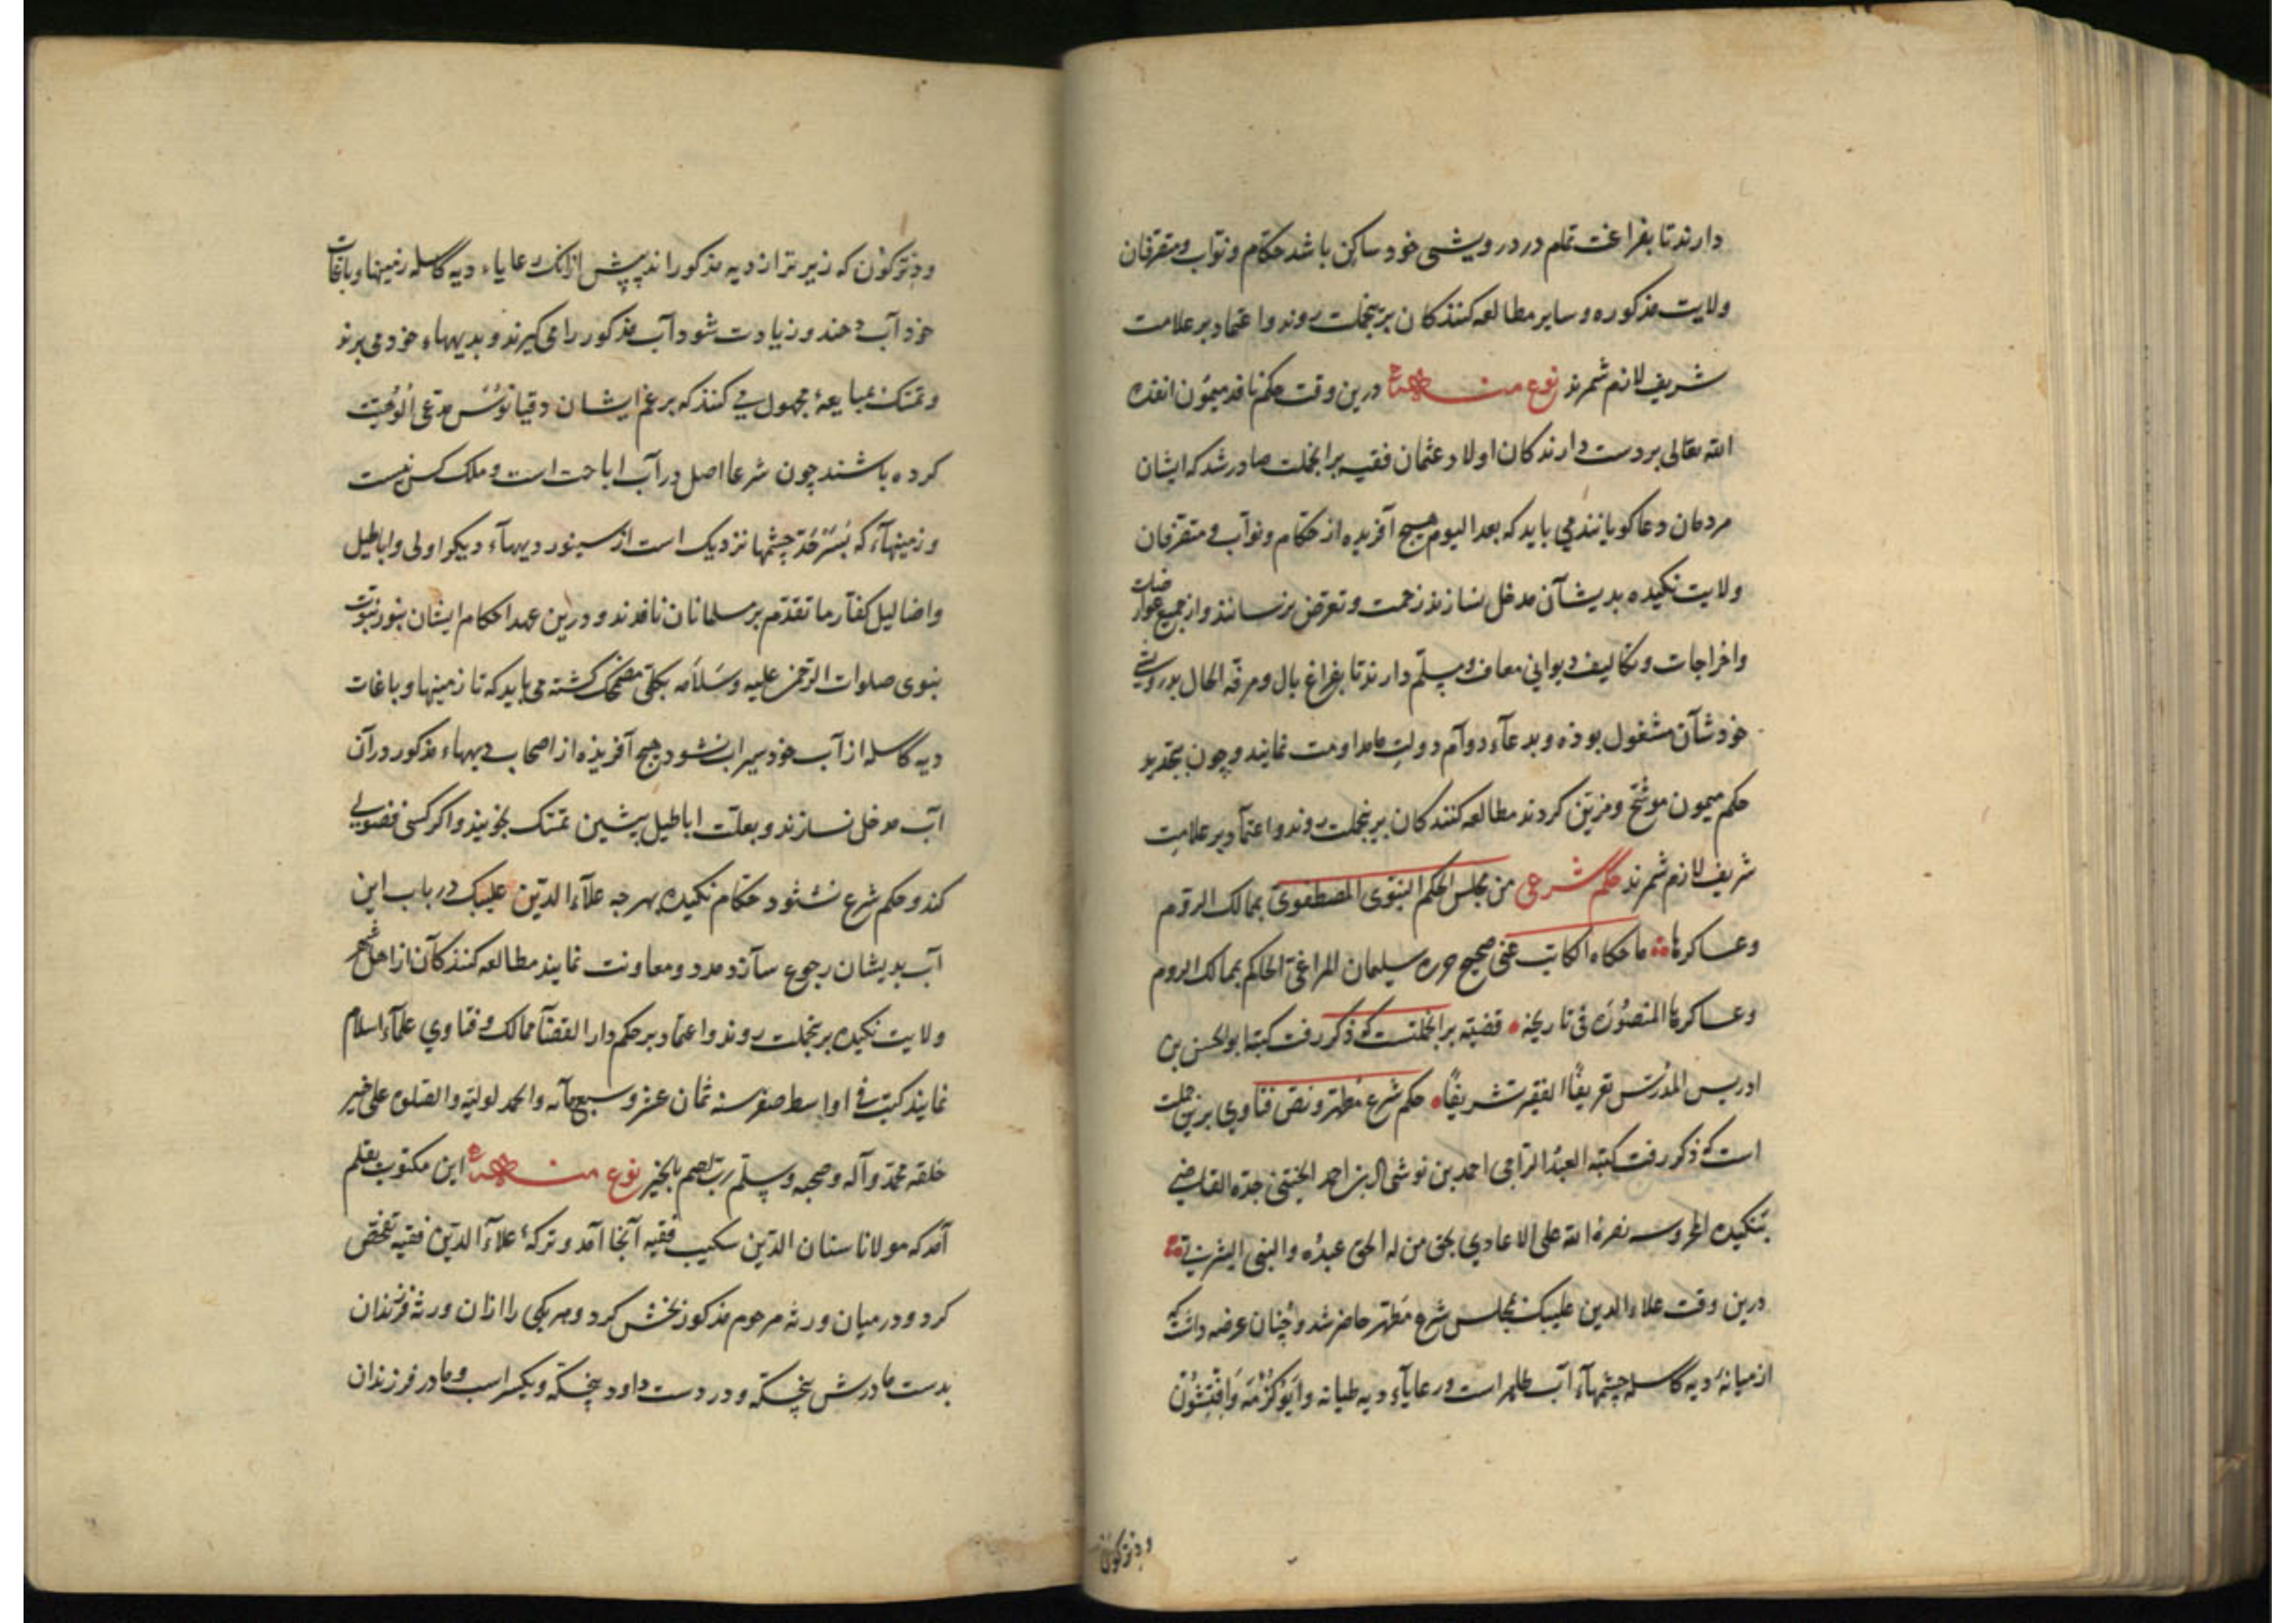 دارند تا بفراغت تمام در درویشی خود ساکن باشد حکام و نواب و متصرفان
ولایت مذکوره و سایر مطالعه کنندکان برینجملت روند و اعتماد بر علامت
شریف لازم شمرند نوع منه درین وقت حکم نافذ میمون انفذه
الله تعالی بر دست دارندکان اولاد عثمان فقیه برانجملت صادر شد که ایشان
مردمان دعاکویانند می باید که بعد الیوم هیچ آفریده از حکام و نواب و متصرفان
ولایت نکیده بدیشان مدخل نسازند زحمت و تعرض نرسانند و از جمیع عوارضات
و اخراجات و تکالیف دیوانی معاف و مسلم دارند تا بفراغ بال و مرفه الحال بدرویشی
خودشان مشغول بوده و بدعاء دوام دولت ما مداومت نمایند و چون بتجدید
حکم میمون موشح و مزین کردند مطالعه کنندکان برینجملت روند و اعتماد بر علامت
شریف لازم شمرند حکم شرعی من مجلس الحکم النبوی المصطفوی بممالک الروم
و عساکرها ما حکاه الکاتب عنی صحیح حرره سلیمان المراغی الحاکم بممالک الروم
و عساکرها المنصوره فی تاریخه قضیه برانجملتست که ذکر رفت کتبه ابوالحسن بن
ادریس المدرس تعریفا الفقیر تشریفا حکم شرع مطهر و نص فتاوی برین جملت
است که ذکر رفت کتبه العبد الراجی احمد بن احمد الختنی جده القاضی
بنکیده المحروسه نصره الله علی الاعادی بحق من له الحق عبده والنبی الیثربی
درین وقت علاء الدین علیبک بمجلس شرع مطهر حاضر شد و چنان عرضه داشت که
از میانه دیه کاسله چشمهاء آب ظاهر است و رعایاء دیه طیانه
ودنز کون
ودنزکون که زیرتر از دیه مذکور اند پیش از آنک رعایاء دیه کاسله زمینها و باغات
خود آب دهند و زیادت شود آب مذکور را می کیرند و بدیهاء خود می برند
و تمسک بمبایعه مجهول می کنند که برغم ایشان دقیانوس مدعی الوهیت
کرده باشند چون شرعا اصل در آب اباحت است و ملک کس نیست
و زمینهاء که بسرحد چشمها نزدیک است از سینور دیهاء دیکر اولی و اباطیل
و اضالیل کفار ما تقدم بر مسلمانان نافذ نبود و درین عهد احکام ایشان بنور نبوت
نبوی صلوات الرحمن علیه و سلامه بکلی مضمحل کشته می باید که تا زمینها و باغات
دیه کاسله از آب خود سیراب نشود هیچ آفریده از اصحاب دیهاء مذکور در آن
آب مدخل نسازند و بعلت اباطیل پیشین تمسک نجویند و اکر کسی فضولی
کند و حکم شرع نشنود حکام نکیده بهرچه علاء الدین علیبک در باب این
آب بدیشان رجوع سازد مدد و معاونت نمایند مطالعه کنندکان از اهل شهر
ولایت نکیده برینجملت روند و اعتماد بر حکم دار القضاء ممالک و فتاوی علماء اسلام
نمایند کتب فی اواسط صفر سنه ثمان عشر و سبعمائه والحمد لولیه والصلوه علی خیر
خلقه محمد و آله و صحبه و سلم رب اختم بالخیر نوع منه این مکتوب بقلم
آمد که مولانا سنان الدین فقیه آنجا آمد و ترکه علاء الدین فقیه تفحص
کرد و در میان ورثه مرحوم مذکور بخش کرد و هر یکی را از آن ورثه فرزندان
بدست مادرش پنجکه و در دست داود پنجکه و یکسر اسب و مادر فرزندان